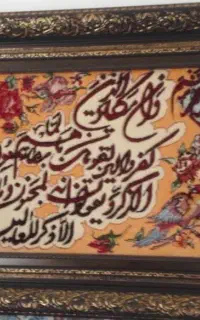 وان يكاد الذين
كفروا ليزلقونك بابصارهم لما سمعوا
الذكر و يقولون انه لمجنون و
الا ذكر للعالمين